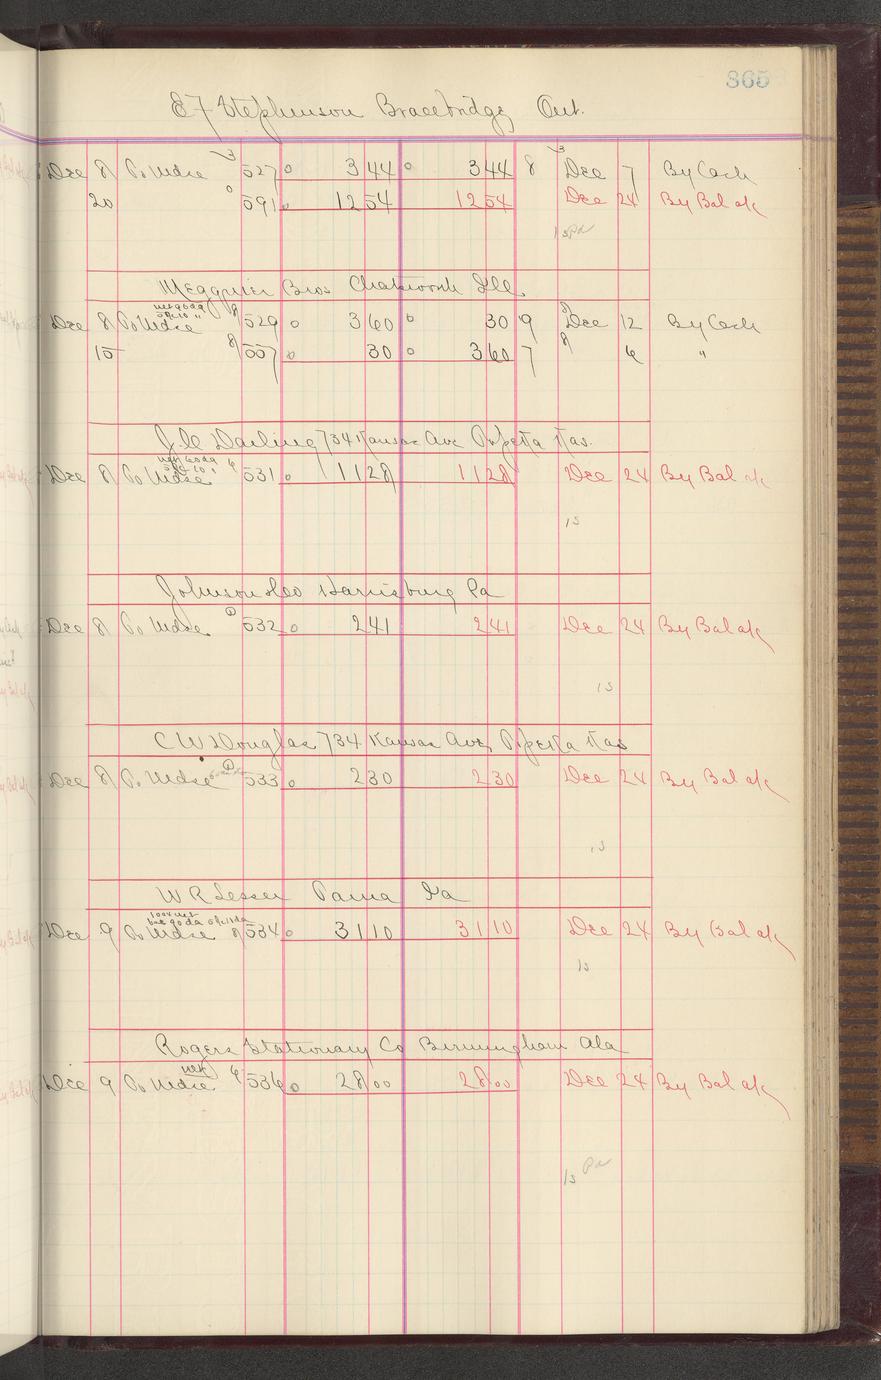 365
E F Stephenson Bracebridge Ont.
Dec 8 To Mdse 3 527 0 3 44 0 3 44 8 3 Dec 7 By Cash
20 0 591 0 12 54 12 54 Dec 24 By Bal a/c
13 Pd
Megquier Bros Chatsworth Ill.
net 60 da
Dec 8 To Mdse 8 529 0 3 60 0 30 9 8 Dec 12 By Cash
15 8 557 0 30 0 3 60 7 8 6 "
734 Kansas Ave Topeka Kas.
Dec 8 To Mdse 6 531 0 11 28 11 28 Dec 24 By Bal a/c
13
Johnson Harrisburg Pa
Dec 8 To Mdse 532 0 2 41 2 41 Dec 24 By Bal a/c
13
C W Douglas 734 Kansas Ave, Topeka Kas
Dec 8 To Mdse 533 0 2 30 2 30 Dec 24 By Bal a/c
13
W R Lesser Parma Ia
Dec 9 To Mdse 8 534 0 31 10 31 10 Dec 24 By Bal a/c
13
Rogers Stationary Co Birmingham Ala
Dec 9 To Mdse 6 536 0 28 00 28 00 Dec 24 By Bal a/c
13 Pd